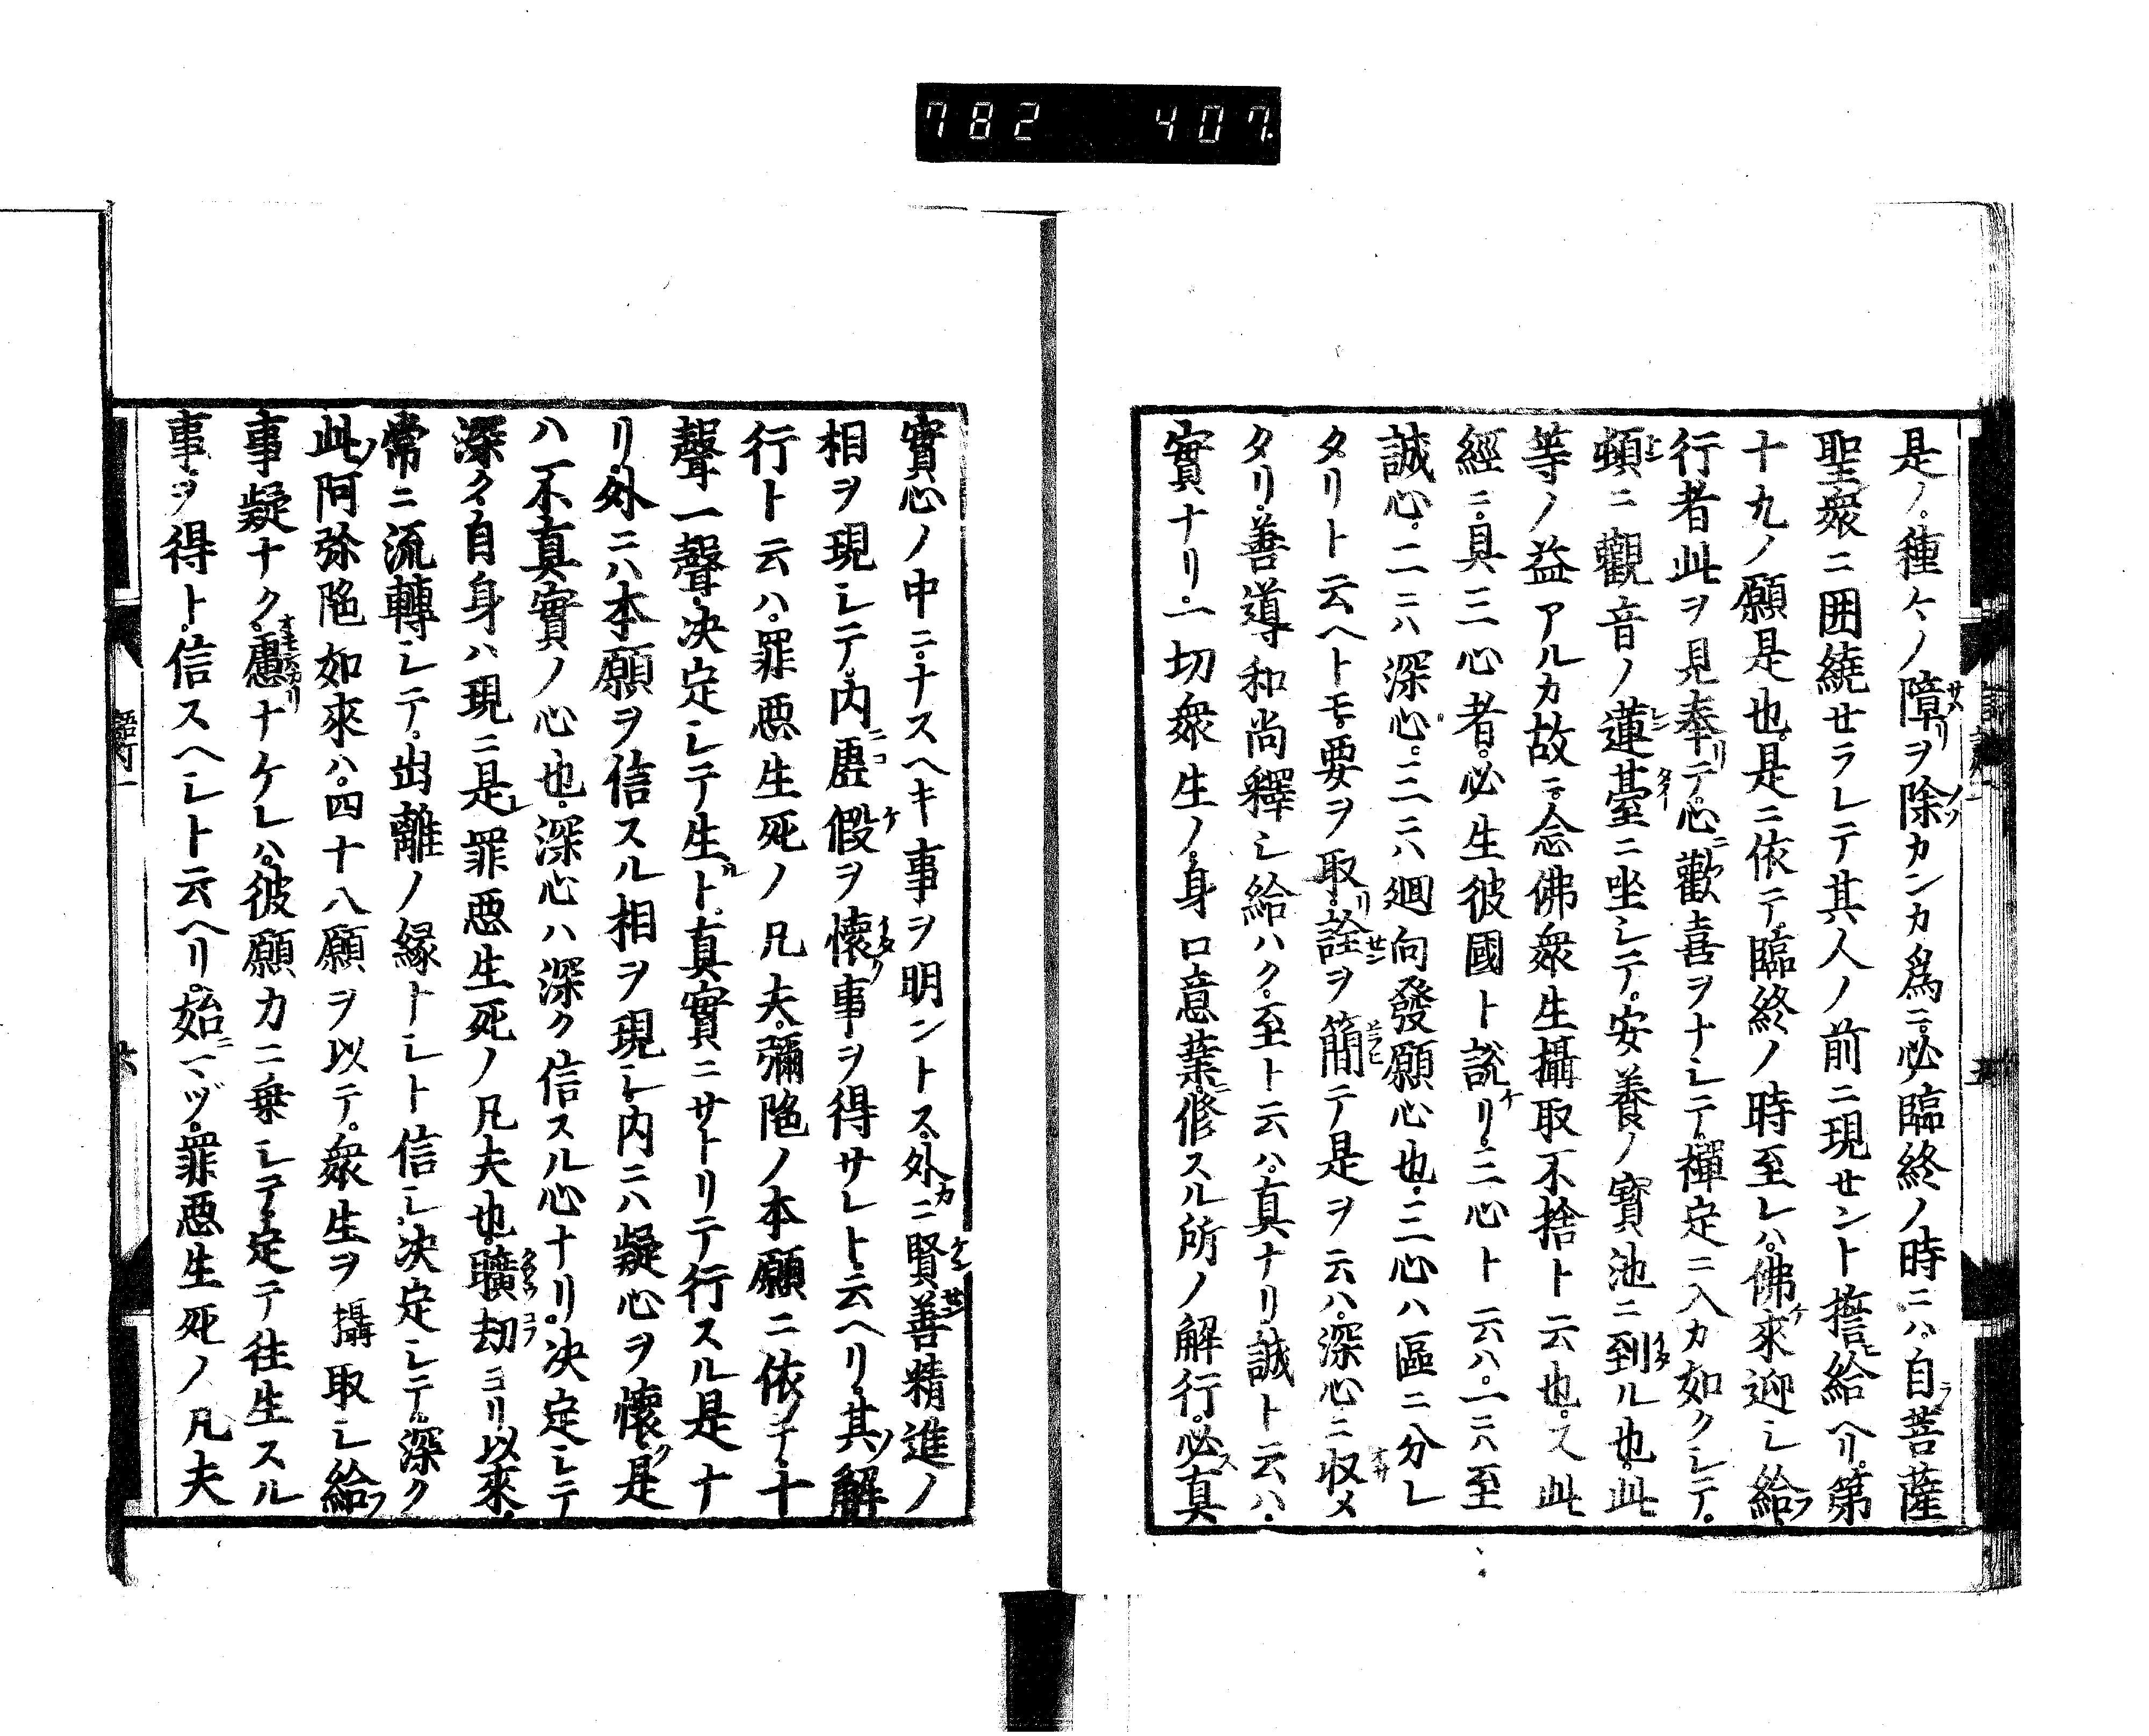 782 407
是ノ種々ノ障ヲ除カンカ爲ニ必臨終ノ時ニハ自菩薩
聖衆ニ囲繞せラレテ其人ノ前ニ現せント擔給ヘリ第
十九ノ願是也是ニ依テ臨終ノ時至レハ佛來迎シ給フ
行者此ヲ見奉リテ心ニ歡喜ヲナシテ禪定ニ入カ如クシテ
頓ニ觀音ノ蓮臺ニ坐シテ安養ノ寳池ニ到ル也此
等ノ益アルカ故ニ念佛衆生攝取不捨ト云也又此
經ニ具三心者必生彼國ト説リ三心ト云ハ一ニハ至
誠心二ニハ深心三ニハ廻向發願心也三心ハ區ニ分レ
タリト云ヘトモ要ヲ取リ詮ヲ簡テ是ヲ云ハ深心ニ収メ
タリ善導和尚釋シ給ハク至ト云ハ真ナリ誠ト云ハ
實ナリ一切衆生ノ身口意業ニ修スル所ノ解行必ス真
實心ノ中ニナスヘキ事ヲ明ントス外ニ賢善精進ノ
相ヲ現シテ内虚假ヲ懷事ヲ得サレト云ヘリ其ノ解
行ト云ハ罪惡生死ノ凡夫彌陀ノ本願ニ依テ十
聲一聲決定シテ生ルト真實ニサトリテ行スル是ナ
リ外ニハ本願ヲ信スル相ヲ現シ内ニハ疑心ヲ懷ク是
ハ不真實ノ心也深心ハ深ク信スル心ナリ決定シテ
深ク自身ハ現ニ是レ罪惡生死ノ凡夫也曠劫ヨリ以來
常ニ流轉シテ出離ノ縁トシト信シ決定シテ深ク
此ノ阿弥陀如來ハ四十八願ヲ以テ衆生ヲ攝取シ給フ
事疑ナク慮ナケレハ彼願力ニ乗シテ定テ往生スル
事ヲ得ト信スヘシト云ヘリ始ニマヅ罪惡生死ノ凡夫